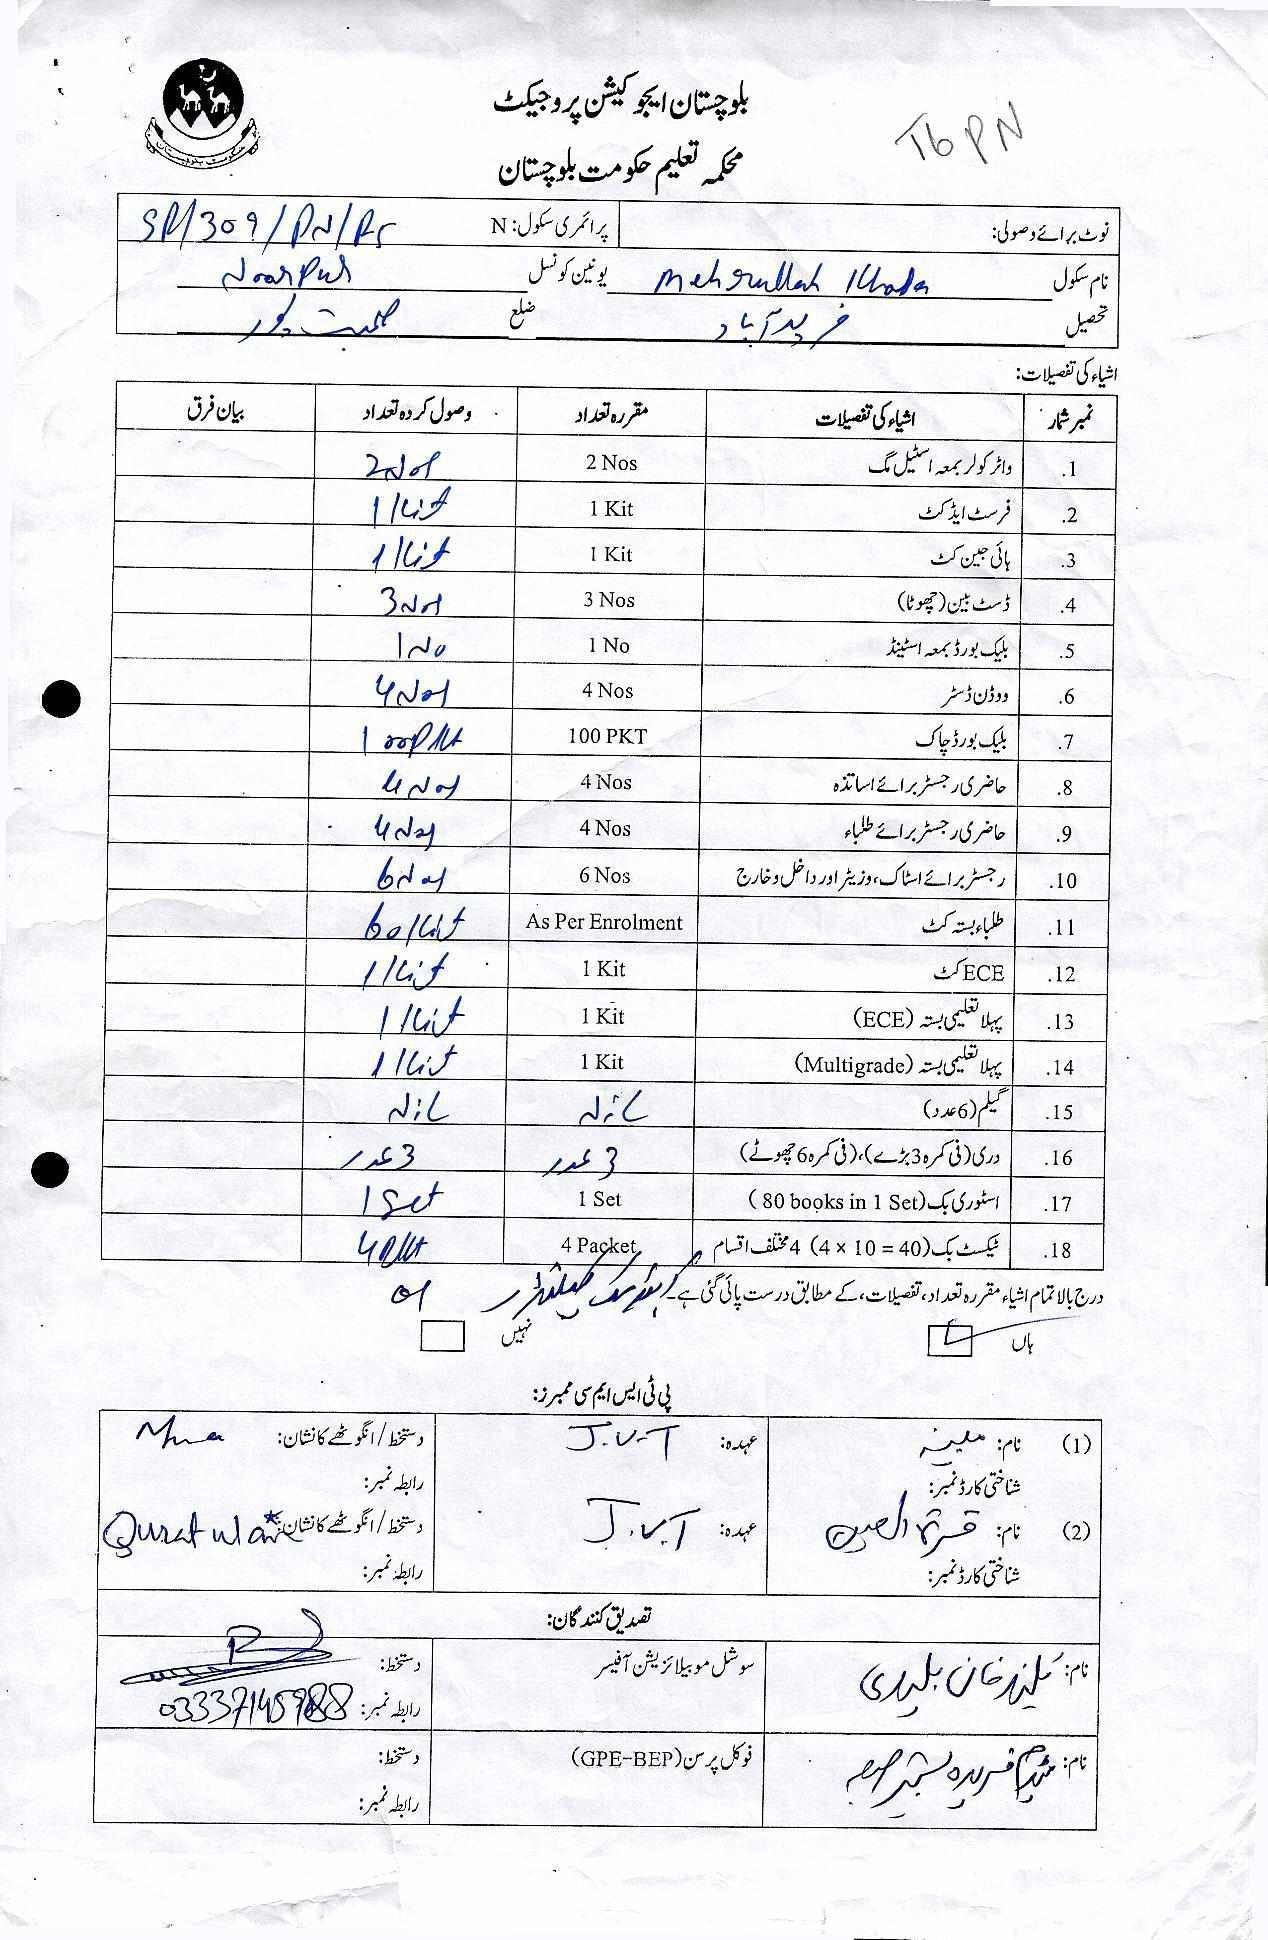 بلوچستان ایجوکیشن پروجیکٹ
T6PN
محکمہ تعلیم حکومت بلوچستان
حکومت بلوچستان
نوٹ برائے وصولی: پرائمری سکول: N SR/309/PN/Ps
نام سکول Mehrullah Khosa یونین کونسل Noor Pur
تحصیل فریدآباد ضلع صحبت پور
اشیاء کی تفصیلات:
نمبر شمار اشیاء کی تفصیلات مقررہ تعداد وصول کردہ تعداد بیان فرق
1. واٹر کولر بمعہ اسٹیل مگ 2 Nos 2 Nos
2. فرسٹ ایڈ کٹ 1 Kit 1 Kit
3. ہائی جین کٹ 1 Kit 1 Kit
4. ڈسٹ بین (چھوٹا) 3 Nos 3 Nos
5. بلیک بورڈ بمعہ اسٹینڈ 1 No 1 No
6. ووڈن ڈسٹر 4 Nos 4 Nos
7. بلیک بورڈ چاک 100 PKT 100 Pkt
8. حاضری رجسٹر برائے اساتذہ 4 Nos 4 Nos
9. حاضری رجسٹر برائے طلباء 4 Nos 4 Nos
10. رجسٹر برائے اسٹاک، وزیٹر اور داخل و خارج 6 Nos 6 Nos
11. طلباء بستہ کٹ As Per Enrolment 60 Kit
12. ECE کٹ 1 Kit 1 Kit
13. پہلا تعلیمی بستہ (ECE) 1 Kit 1 Kit
14. پہلا تعلیمی بستہ (Multigrade) 1 Kit 1 Kit
15. گیلم (6 عدد) NiL NiL
16. دری (فی کمرہ 3 بڑے)، (فی کمرہ 6 چھوٹے) 3 عدد 3 عدد
17. اسٹوری بک (80 books in 1 Set) 1 Set 1 Set
18. ٹیکسٹ بک (4 × 10 = 40) 4 مختلف اقسام 4 Packet 4 Pkt
درج بالا تمام اشیاء مقررہ تعداد، تفصیلات، کے مطابق درست پائی گئی ہے۔ 01
ہاں نہیں
پی ٹی ایس ایم سی ممبرز:
(1) نام: عہدہ: J.V.T دستخط/انگوٹھے کا نشان:
شناختی کارڈ نمبر: رابطہ نمبر:
(2) نام: قرۃ العین عہدہ: J.V.T دستخط/انگوٹھے کا نشان: Qurat ul ain
شناختی کارڈ نمبر: رابطہ نمبر:
تصدیق کنندگان:
نام: خان بلیدی سوشل موبیلائزیشن آفیسر دستخط:
رابطہ نمبر: 03337145988
نام: میڈم فریدہ فوکل پرسن (GPE-BEP) دستخط:
رابطہ نمبر: